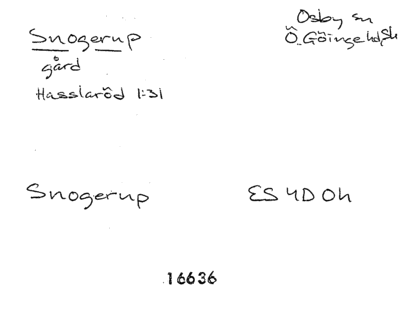 Snogerup
gård
Hasslaröd 1:31
Osby sn
Ö. Göinge hd, Sk
Snogerup
ES 4D 0h
16636